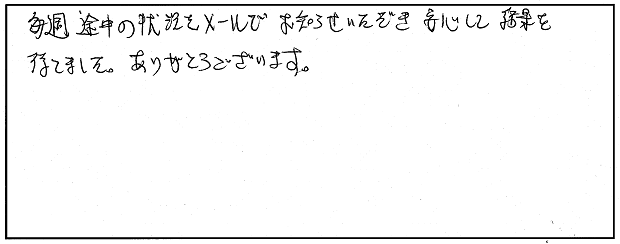 毎週 途中の状況をメールで お知らせいただき 安心して 結果を
待てました。ありがとうございます。